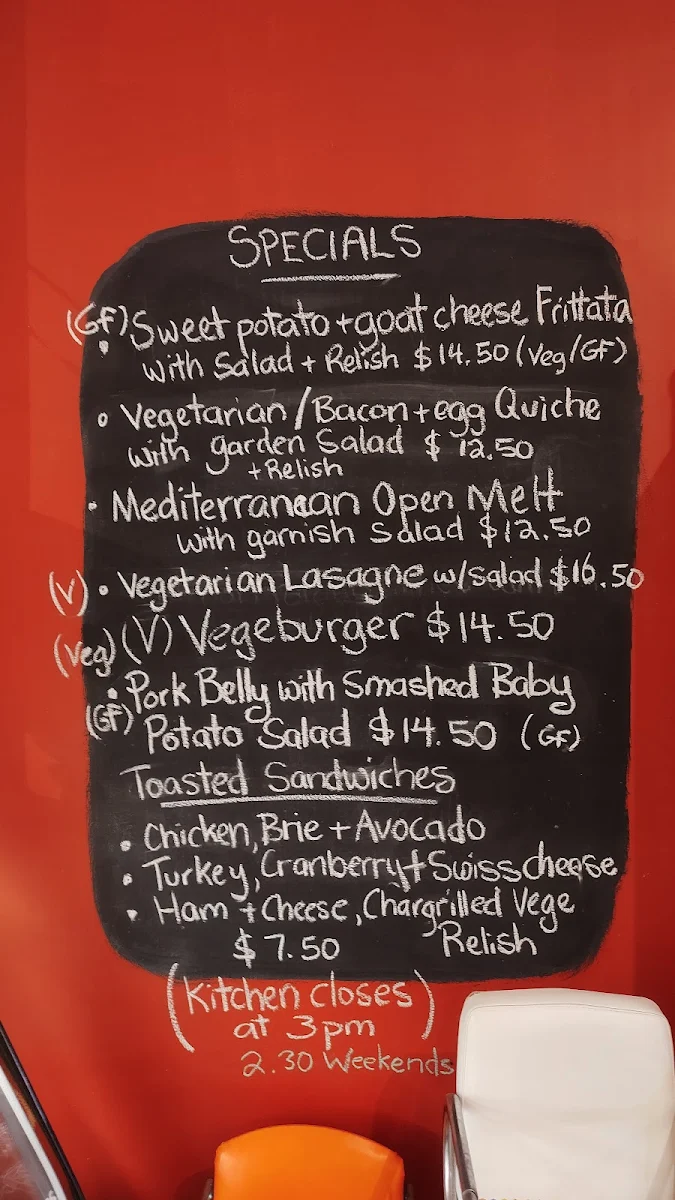 SPECIALS
(GF) Sweet potato + goat cheese Frittata
with Salad + Relish $14.50 (Veg/GF)
Vegetarian/Bacon + egg Quiche
with garden Salad $12.50
+ Relish
Mediterranean Open Melt
with garnish Salad $12.50
(V) • Vegetarian Lasagne w/salad $16.50
(Veg) (V) Vegeburger $14.50
• Pork Belly with Smashed Baby
(GF) Potato Salad $14.50 (GF)
Toasted Sandwiches
• Chicken, Brie + Avocado
• Turkey, Cranberry + Swiss cheese
• Ham + Cheese, Chargrilled Vege
$7.50 Relish
(Kitchen closes
at 3pm)
2.30 Weekends